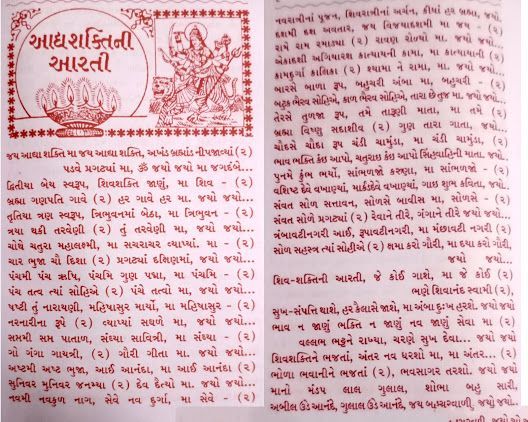 આદ્યશક્તિની
આરતી
જય આદ્યા શક્તિ મા જય આદ્યા શક્તિ, અખંડ બ્રહ્માંડ નીપજાવ્યાં (૨)
પડવે પ્રગટ્યાં મા, ૐ જયો જયો મા જગદંબે...
દ્વિતીયા બેય સ્વરૂપ, શિવશક્તિ જાણું, મા શિવ - (૨)
બ્રહ્મા ગણપતિ ગાવે (૨) હર ગાવે હર મા. જયો જયો...
તૃતિયા ત્રણ સ્વરૂપ, ત્રિભુવનમાં બેઠા, મા ત્રિભુવન - (૨)
ત્રયા થકી તરવેણી (૨) તું તરવેણી મા, જયો જયો...
ચોથે ચતુરા મહાલક્ષ્મી, મા સચરાચર વ્યાપ્યાં. મા -
ચાર ભુજા ચૌ દિશા (૨) પ્રગટ્યાં દક્ષિણમાં, જયો જયો...
પંચમી પંચ ઋષિ, પંચમિ ગુણ પદ્મા, મા પંચમિ - (૨)
પંચ તત્વ ત્યાં સોહિએ (૨) પંચે તત્વો મા, જયો જયો...
ષષ્ટી તું નારાયણી, મહિષાસુર માર્યો, મા મહિષાસુર - (૨)
નરનારીના રૂપે (૨) વ્યાપ્યાં સઘળે મા, જયો જયો...
સપ્તમી સપ્ત પાતાળ, સંધ્યા સાવિત્રી, મા સંધ્યા - (૨)
ગૌ ગંગા ગાયત્રી, (૨) ગૌરી ગીતા મા. જયો જયો...
અષ્ટમી અષ્ટ ભુજા, આઈ આનંદા, મા આઈ આનંદા (૨)
સુનિવર મુનિવર જનમ્યા (૨) દેવ દૈત્યો મા. જયો જયો...
નવમી નવકુળ નાગ, સેવે નવ દુર્ગા, મા સેવે - (૨)
નવરાત્રીનાં પૂજન, શિવરાત્રીનાં અર્ચન, કીધાં હર બ્રહ્મા, જયો..
દશમી દશ અવતાર, જય વિજયાદશમી મા જય - (૨)
રામે રામ રમાડ્યા (૨) રાવણ રોળ્યો મા. જયો જયો...
એકાદશી અગિયારશ કાત્યાયની કામા, મા કાત્યાયની (૨)
કામદુર્ગા કાલિકા (૨) શ્યામા ને રામા, મા. જયો જયો...
બારસે બાળા રૂપ, બહુચરી અંબા મા, બહુચરી - (૨)
બટુક ભૈરવ સોહિએ, કાળ ભૈરવ સોહિએ, તારા છે તુજ મા. જયો જયો...
તેરસે તુળજા રૂપ, તમે તારૂણી માતા, મા તમે - (૨)
બ્રહ્મા વિષ્ણુ સદાશીવ (૨) ગુણ તારા ગાતા, જયો...
ચૌદસે ચૌદા રૂપ ચંડી ચામુંડા, મા ચંડી ચામુંડા, (૨)
ભાવ ભક્તિ કંઇ આપો, ચતુરાઇ કંઇ આપો સિંહવાહિની માતા. જયો...
પુનમે કુંભ ભર્યો, સાંભળજો કરુણા, મા સાંભળજો - (૨)
વશિષ્ટ દેવે વખાણ્યાં, માર્કંડદેવે વખાણ્યાં, ગાઇ શુભ કવિતા, જયો...
સંવત સોળ સત્તાવન, સોળસે બાવીસ મા, સોળસે - (૨)
સંવત સોળે પ્રગટ્યાં (૨) રેવાને તીરે, ગંગાને તીરે જયો જયો...
ત્રંબાવટીનગરી આઈ, રૂપાવટીનગરી, મા મંછાવટી નગરી (૨)
સોળ સહસ્ત્ર ત્યાં સોહીએ (૨) ક્ષમા કરો ગૌરી, મા દયા કરો ગૌરી,
જયો જયો...
શિવ-શક્તિની આરતી, જે કોઈ ગાશે, મા જે કોઈ (૨)
ભણે શિવાનંદ સ્વામી, (૨)
સુખ-સંપત્તિ થાશે, હર કૈલાસે જાશે, મા અંબા દુઃખ હરશે. જયો જયો
ભાવ ન જાણું ભક્તિ ન જાણું નવ જાણું સેવા મા (૨)
વલ્લભ ભટ્ટને રાખ્યા, ચરણે સુખ દેવા... જયો જયો...
શિવશક્તિને ભજતાં, અંતર નવ ધરશો મા, મા અંતર... (૨)
ભોળા ભવાનીને ભજતાં (૨), ભવસાગર તરશો. જયો જયો
માનો મંડપ લાલ ગુલાલ, શોભા બહુ સારી,
અબીલ ઉડે આનંદે, ગુલાલ ઉડે આનંદે, જય બહુચરવાળી, જયો જયો..